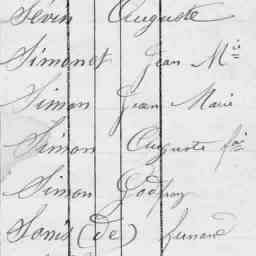 Sévin Auguste
Simonet Jean Mie
Simon Jean Marie
Simon Auguste
Simon Godfroy
Sonis (de) fernand